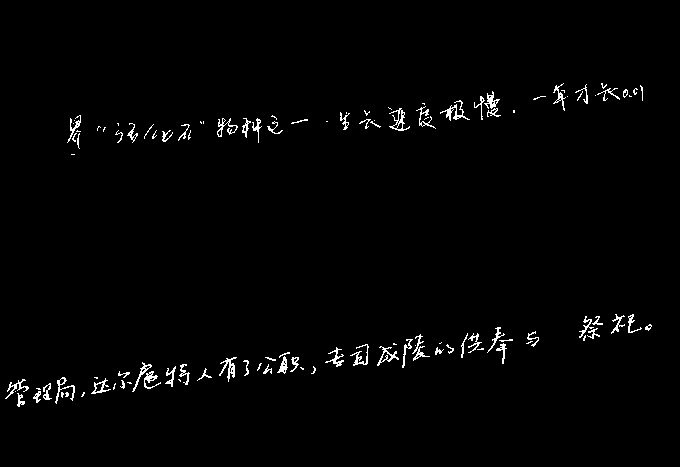 界“活化石”物种之一.生长速度极慢.一年才长0.01
管理局,达尔扈特人有了公职,专司成陵的供奉与 祭祀。